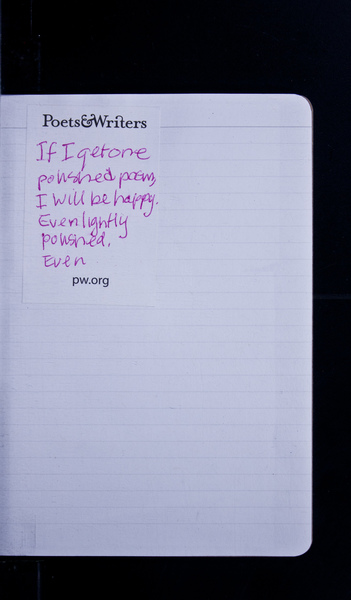 Poets&Writers
If I get one
polished poem,
I will be happy.
Even lightly
polished,
Even
pw.org